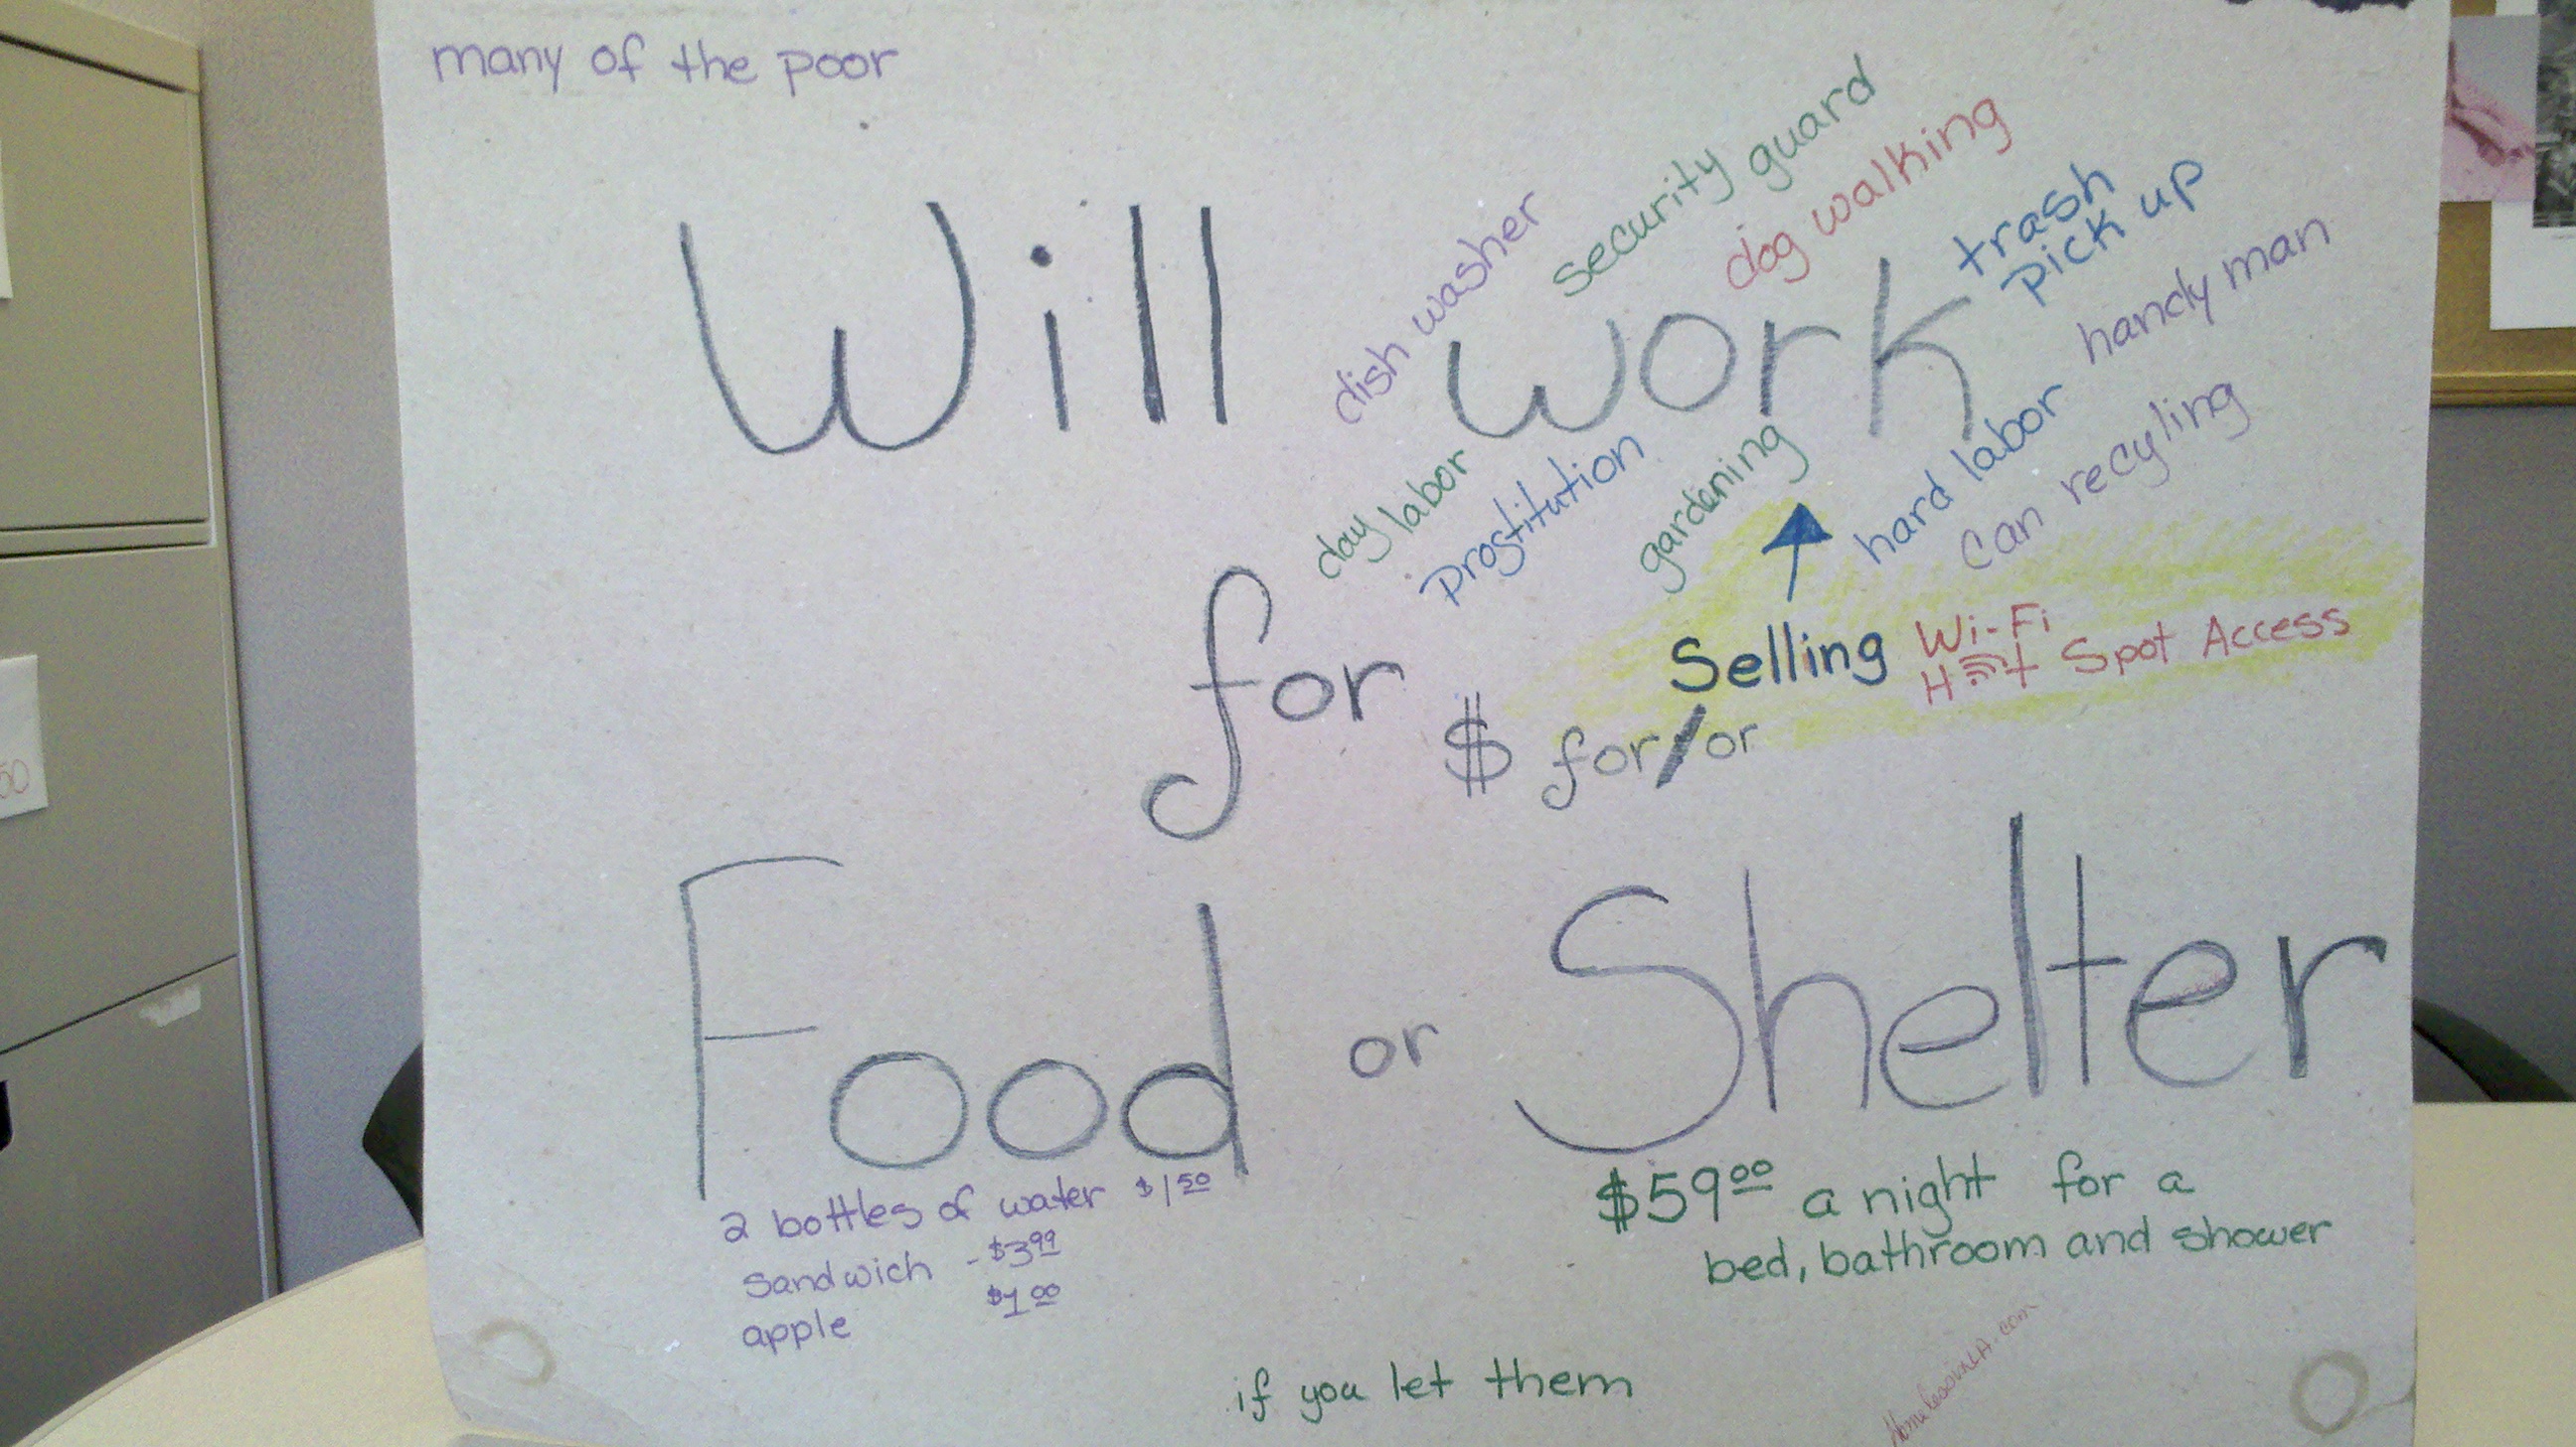 many of the poor
Will work
dish washer
security guard
dog walking
trash
pick up
handy man
day labor
Prostitution
gardening
hard labor
Can recyling
for
Selling Wi-Fi
Hot Spot Access
$ for/or
Food or Shelter
2 bottles of water $1.50
Sandwich - $3.99
apple $1.00
$59.00 a night for a
bed, bathroom and shower
if you let them
HomelessinLA.com
50